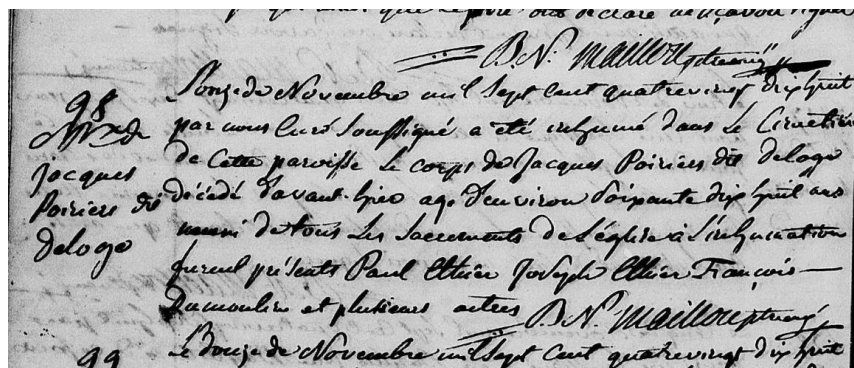 B. N. Mailloux ptre
98
Sre de
jacques
Poiriers dit
deloge
L'onze de Novembre mil Sept Cent quatrevingt dix huit
par nous Curé Soussigné a été inhumé dans Le Cimetière
de Cette paroisse Le corps de Jacques Poiriers dit deloge
décédé d'avant-hier agé d'environ Soixante dix huit ans
muni de tous Les Sacrements de L'église a L'inhumation
furent présents Paul Ethier Joseph Ethier François
Dumoulin et plusieurs autres B. N. Mailloux ptre
99
Le Douze de Novembre mil Sept Cent quatrevingt dix huit